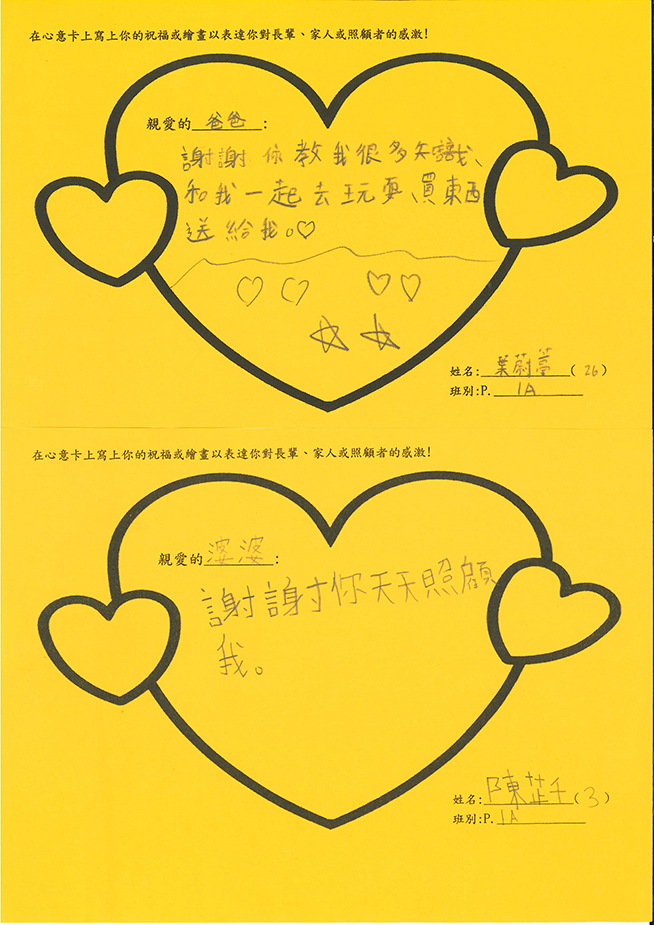 在心意卡上寫上你的祝福或繪畫以表達你對長輩、家人或照顧者的感激!
親愛的 爸爸 :
謝謝你教我很多知識、
和我一起去玩耍、買東西
送給我。♡
姓名: 葉蔚 ( 26 )
班別:P. 1A
在心意卡上寫上你的祝福或繪畫以表達你對長輩、家人或照顧者的感激!
親愛的 婆婆 :
謝謝你天天照顧
我。
姓名: 陳芷千 ( 3 )
班別:P. 1A